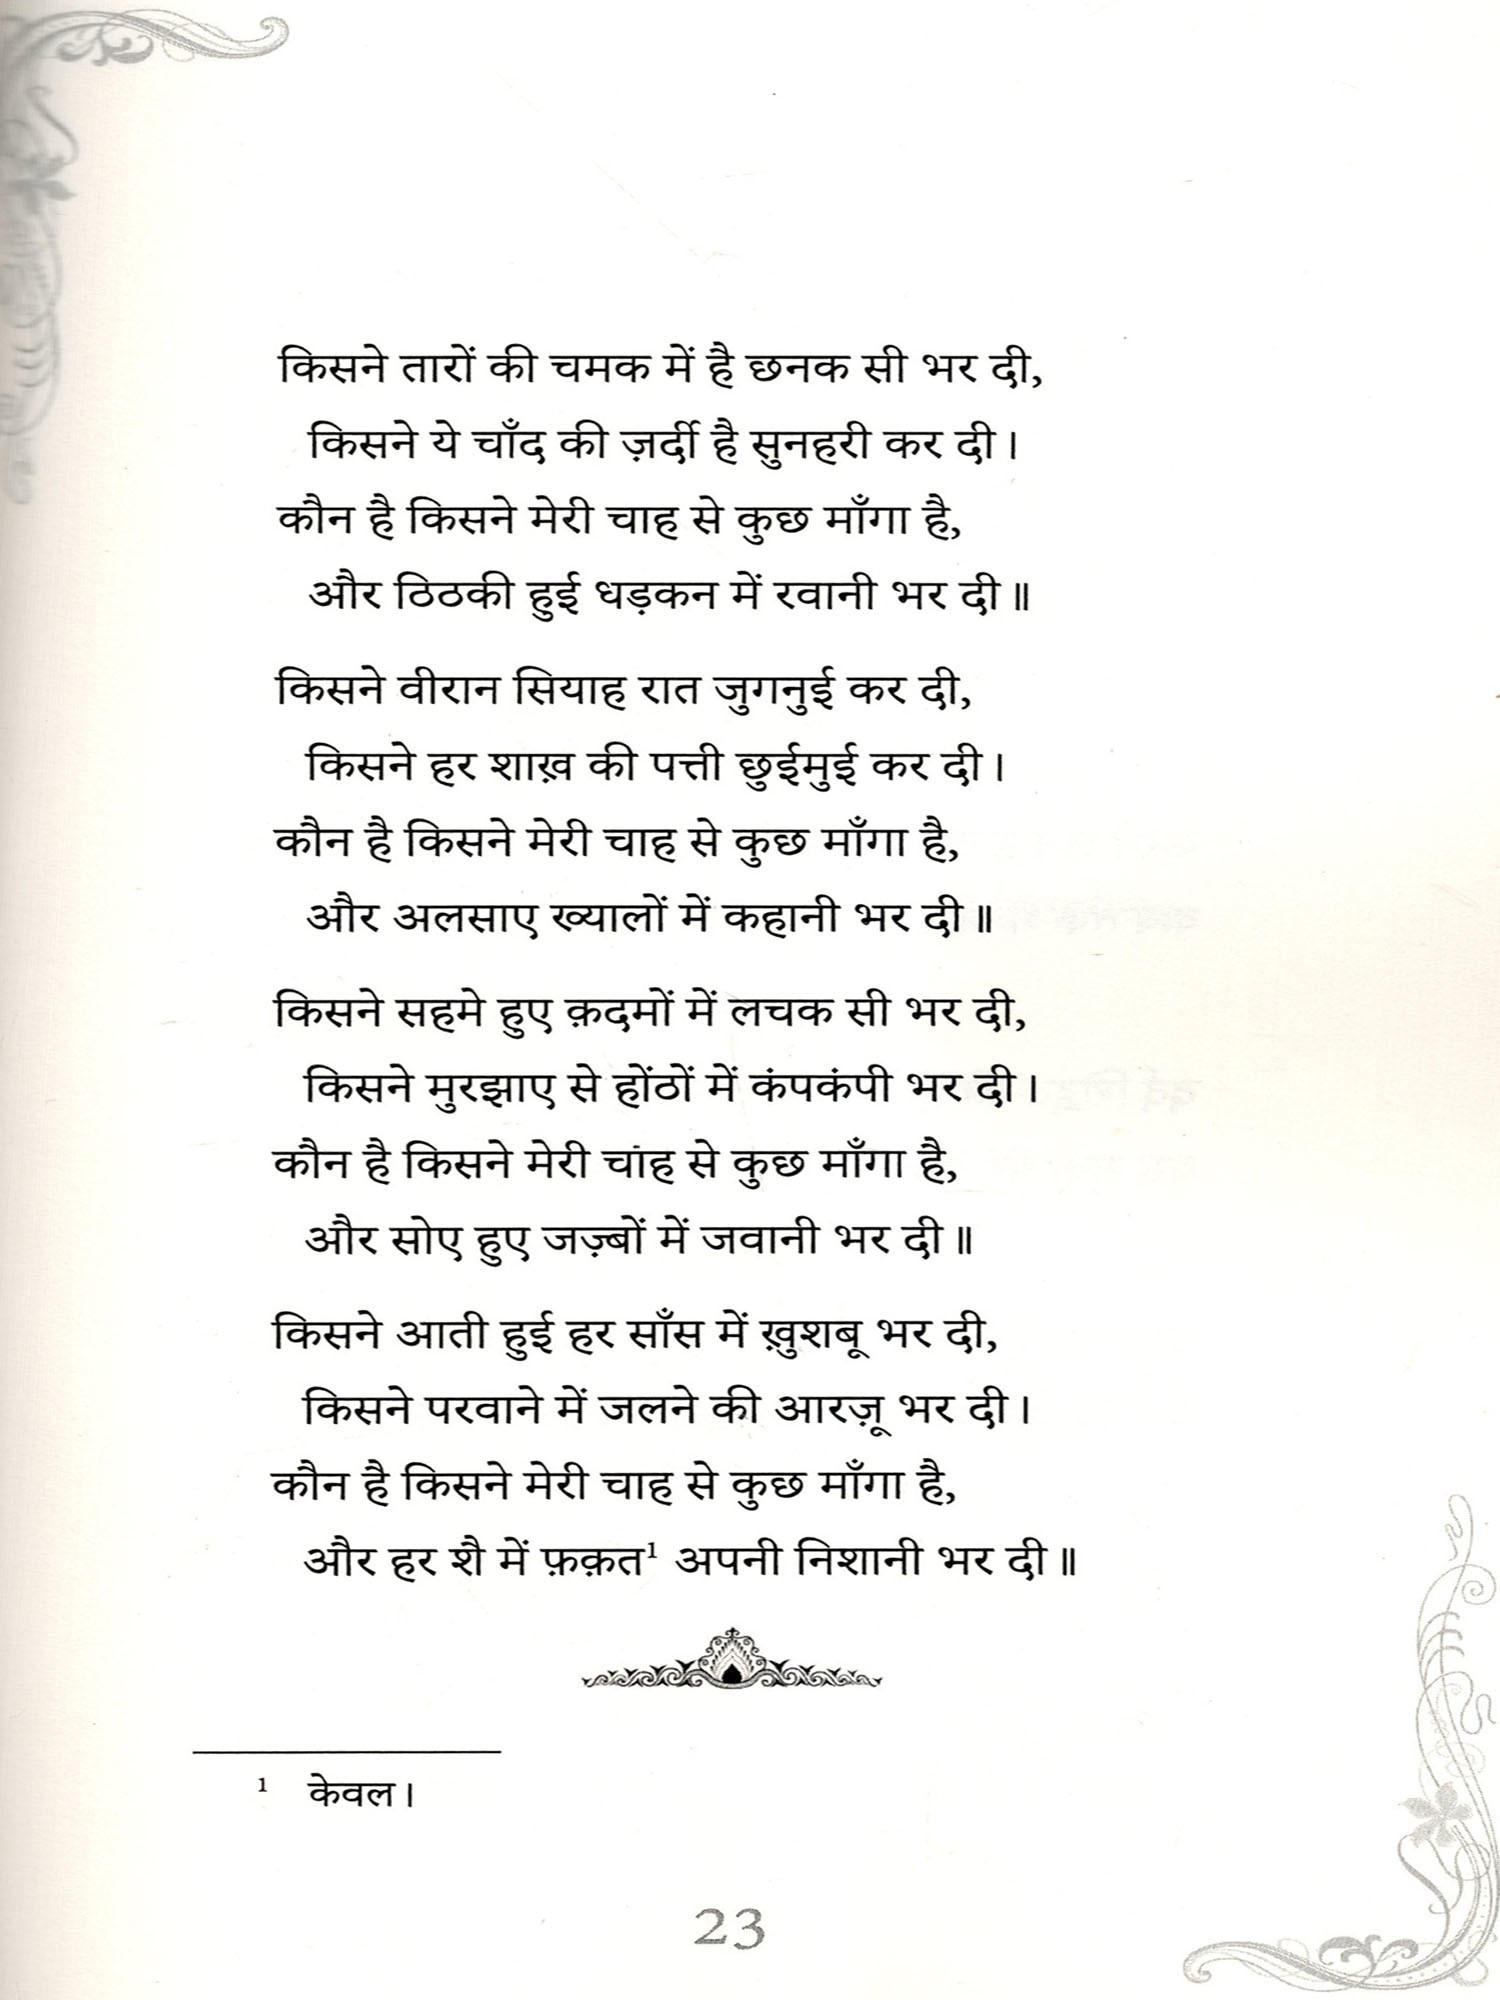 किसने तारों की चमक में है छनक सी भर दी,
किसने ये चाँद की ज़र्दी है सुनहरी कर दी।
कौन है किसने मेरी चाह से कुछ माँगा है,
और ठिठकी हुई धड़कन में रवानी भर दी॥
किसने वीरान सियाह रात जुगनुई कर दी,
किसने हर शाख़ की पत्ती छुईमुई कर दी।
कौन है किसने मेरी चाह से कुछ माँगा है,
और अलसाए ख्यालों में कहानी भर दी॥
किसने सहमे हुए क़दमों में लचक सी भर दी,
किसने मुरझाए से होंठों में कंपकंपी भर दी।
कौन है किसने मेरी चांह से कुछ माँगा है,
और सोए हुए जज़्बों में जवानी भर दी॥
किसने आती हुई हर साँस में ख़ुशबू भर दी,
किसने परवाने में जलने की आरज़ू भर दी।
कौन है किसने मेरी चाह से कुछ माँगा है,
और हर शै में फ़क़त¹ अपनी निशानी भर दी॥
¹ केवल।
23